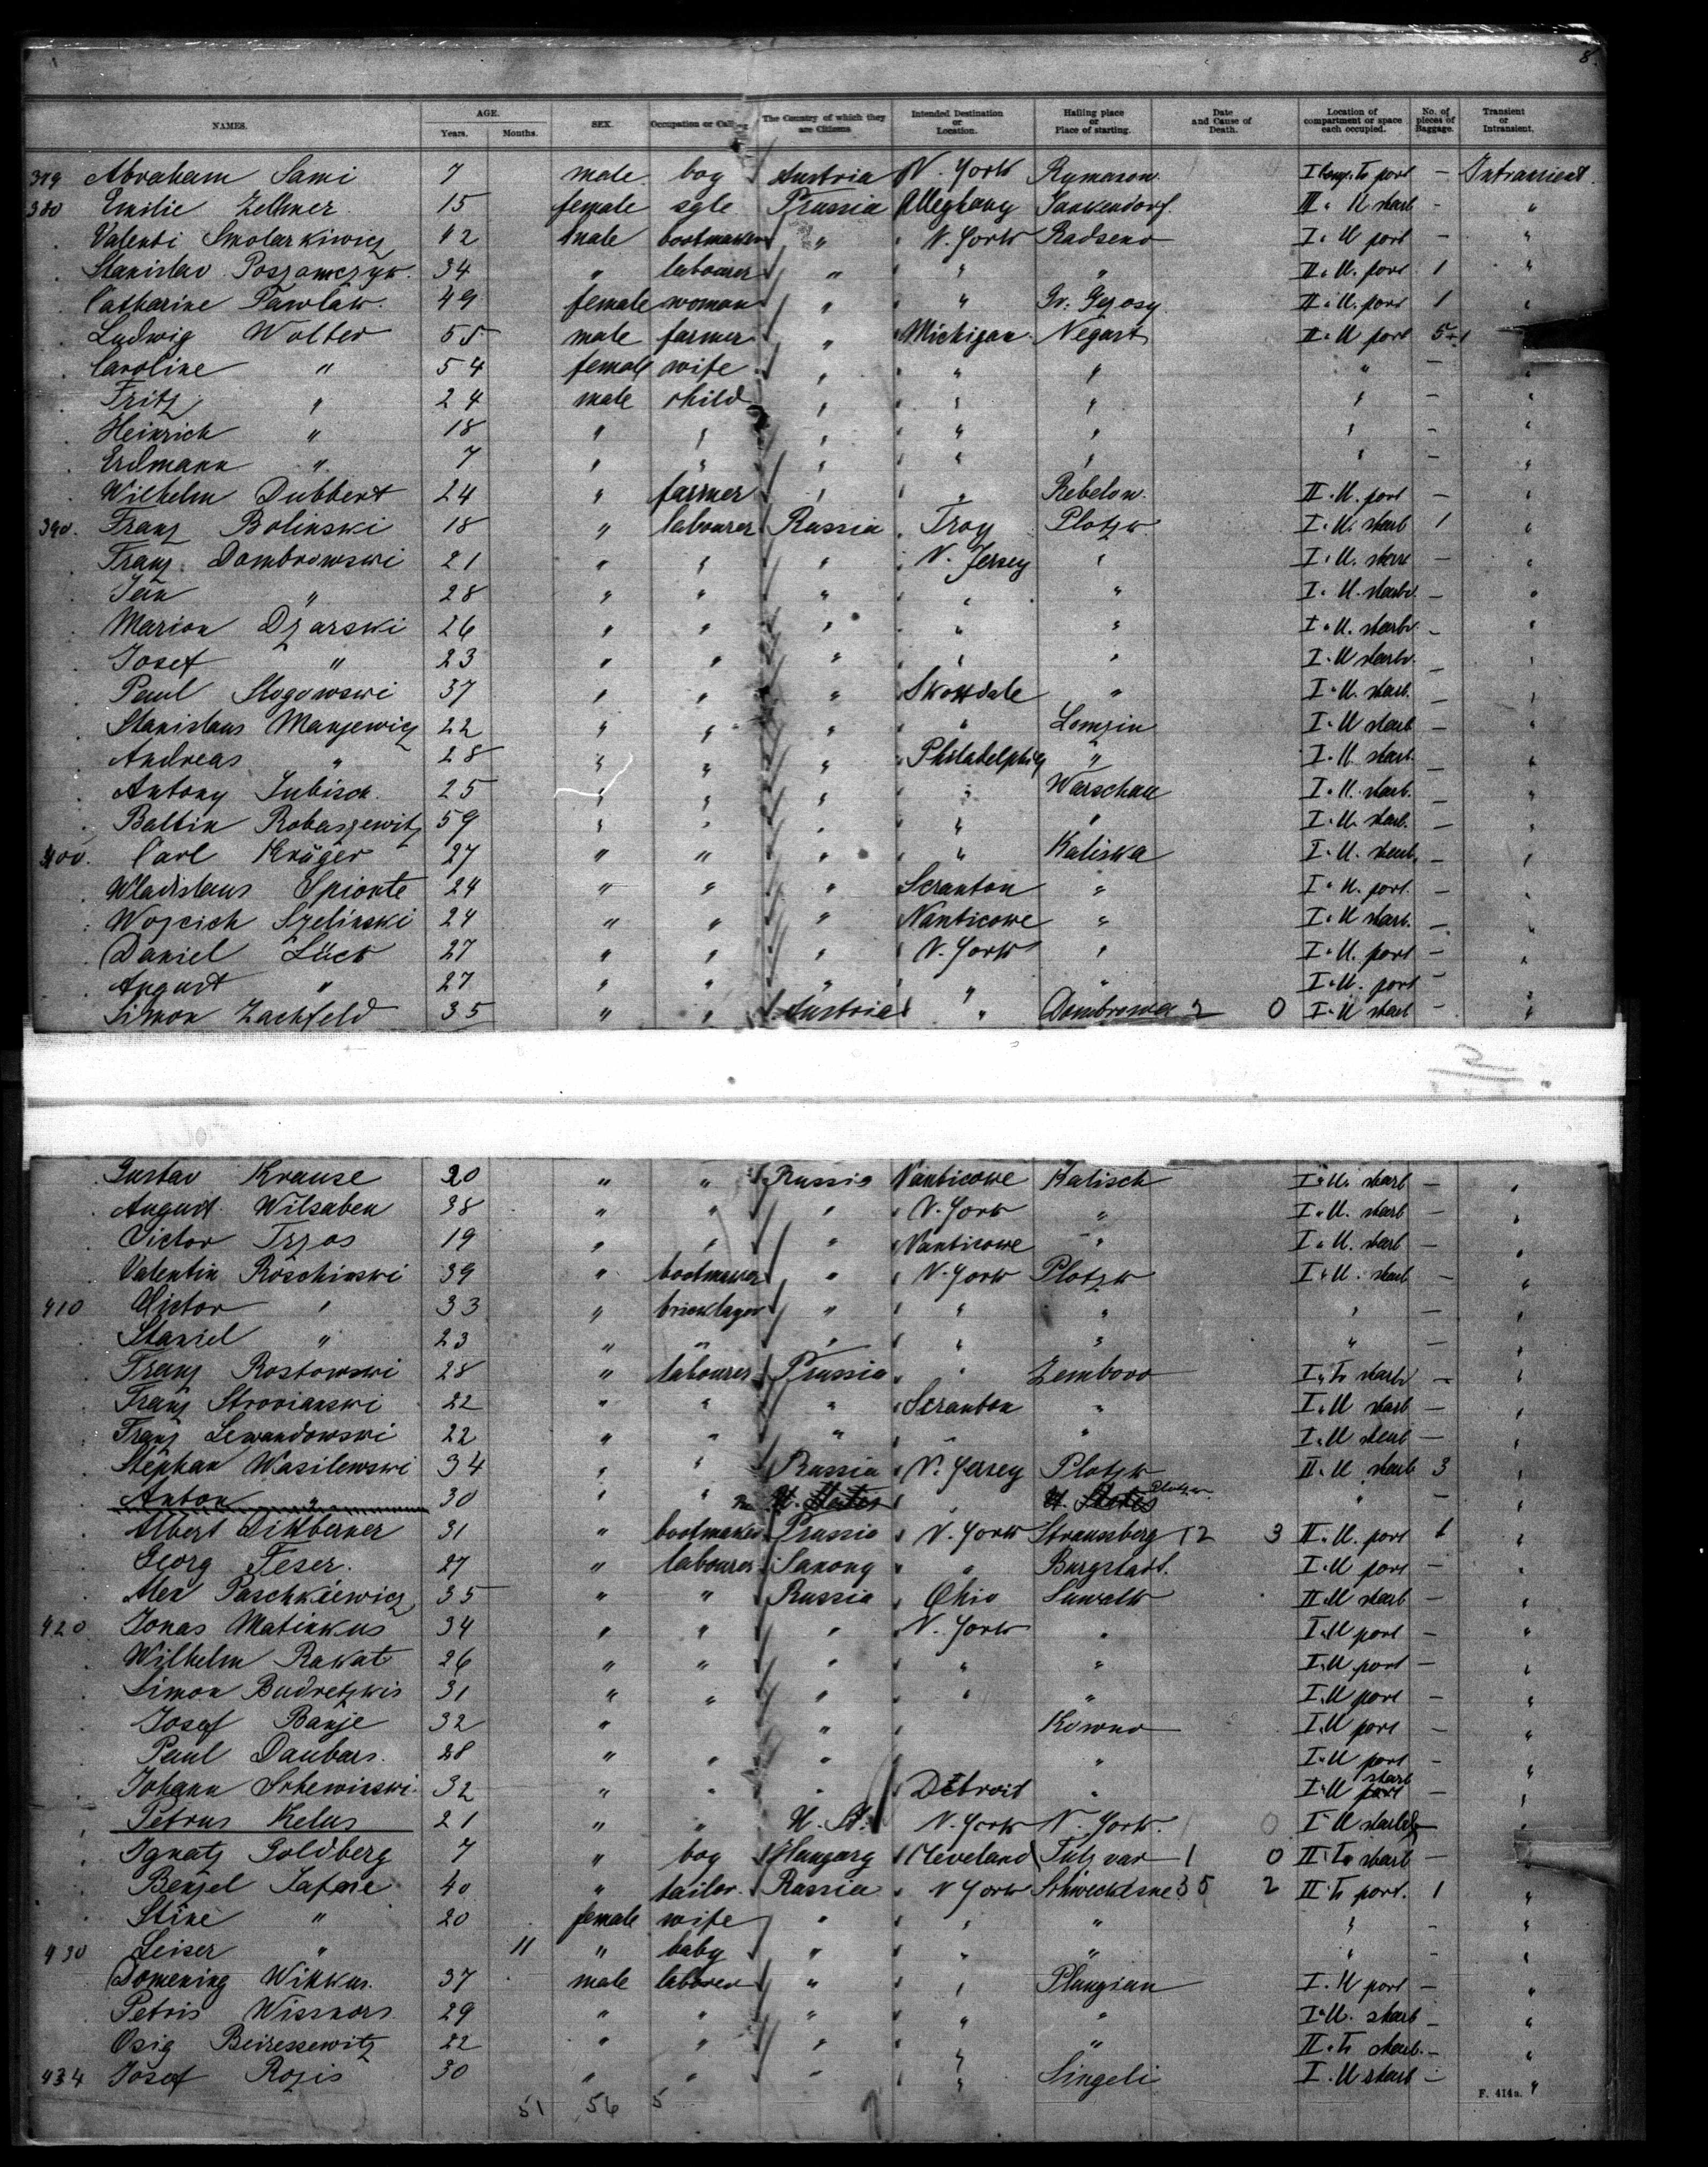 8.
NAMES. AGE. Years. Months. SEX. Occupation or Calling The Country of which they are Citizens Intended Destination or Location. Hailing place or Place of starting. Date and Cause of Death. Location of compartment or space each occupied. No. of pieces of Baggage. Transient or Intransient.
379 Abraham Sami 7 male boy Austria N. York Rymanow I port - Intransient
380 Emilie Zellmer 15 female sgle Prussia Alleghany Jankendorf. II " U starb - "
Valenti Smolarkiwicz 42 male bootmaker " N. York Radseno I " U port - "
Stanislav 34 " labourer " " " II " U. port 1 "
Catharine Pawlak 49 female woman " " Gr. II " U. port 1 "
Ludwig Wolter 55 male farmer " Michigan Negart II " U port 5+1
Caroline " 54 female wife " " " " - "
Fritz " 24 male child " " " " - "
Heinrich " 18 " " " " " " - "
Erdmann " 7 " " " " " " - "
Wilhelm Dubbert 24 " farmer " " Rebelow. II " U. port - "
390. Franz Bolinski 18 " labourer Russia Troy Plotzk I " U. starb 1 "
Franz Dombrowski 21 " " " N. Jersey " I " U. - "
Jan " 28 " " " " " I " U. starb. - "
Marion Dzarski 26 " " " " " I " U. starb. - "
Josef " 23 " " " " " I " U starb. - "
Paul Slogowski 37 " " " Skottdale " I " U. starb. - "
Stanislaus Manjewicz 22 " " " " Lomzin I " U starb - "
Andreas " 28 " " " Philadelphia " I " U. starb. - "
Antony 25 " " " " Warschau I " U. starb. - "
Baltin Robaszewitz 59 " " " " " I " U. starb. - "
400. Carl Krüger 27 " " " " Kaliska I " U. starb. - "
Wladislaus Spionte 24 " " " Scranton " I " U. port. - "
Wojcich Szelinski 24 " " " Nanticoke " I " U starb. - "
Daniel Lück 27 " " " N. York " I " U. port - "
August " 27 " " " " " I " U. port - "
Simon Zachfeld 35 " " Austria " Dombrowa 2 0 I " U starb - "
Gustav Krause 20 " " Russia Nanticoke Kalisch I " U. starb - "
August Wilsaben 38 " " " N. York " I " U. starb - "
Victor Trzos 19 " " " Nanticoke " I " U. starb - "
Valentin Roschinski 39 " bootmaker " N. York Plotzk I " U. starb - "
410 Victor " 33 " bricklayer " " " " - "
Staniel " 23 " " " " " " - "
Franz Rostowski 28 " labourer Prussia " Zembovo I " To starb - "
Franz Strovianski 22 " " " Scranton " I " U starb - "
Franz Lewandowski 22 " " " " " I " U starb - "
Stephan Wasilewski 34 " " Russia N. Jersey Plotzk II " U starb 3 "
Anton " 30 " " U. States " U. States Plotzk " - "
Albert Dittberner 31 " bootmaker Prussia N. York Straussberg 12 3 II " U. port 1 "
Georg Feser. 27 " labourer Saxony " Burgstadt. I " U port - "
Alex Paschkiewicz 35 " " Russia Ohio Suwalk II " U starb - "
420 Jonas Matinkus 34 " " " N. York " I " U port - "
Wilhelm Rakat 26 " " " " " I " U port - "
Simon Budretzkis 31 " " " " " I " U port - "
Josef Banje 32 " " Kowno I " U port - "
Paul Daubars. 28 " " " " I " U port - "
Johann 32 " " " Detroit " I " U port starb - "
Petrus Kelus 21 " " U. St. N. York N. York. 0 I " U starb - "
Ignatz Goldberg 7 " boy Hungary Cleveland 1 0 II " To starb -
Benjel Jafoie 40 " tailor. Russia N York 35 2 II " To port. 1 "
Stine " 20 female wife " " " " - "
430 Leiser " 11 " baby " " " " - "
Domening Witkus. 37 male laborer " " Plungian I " U port - "
Petris 29 " " " " " I " U. starb - "
Osig Beiressewitz 22 " " " " II " To starb. - "
434 Josef Rozis 30 " " " " Singeli I " U starb - "
51 56 5
F. 414a.